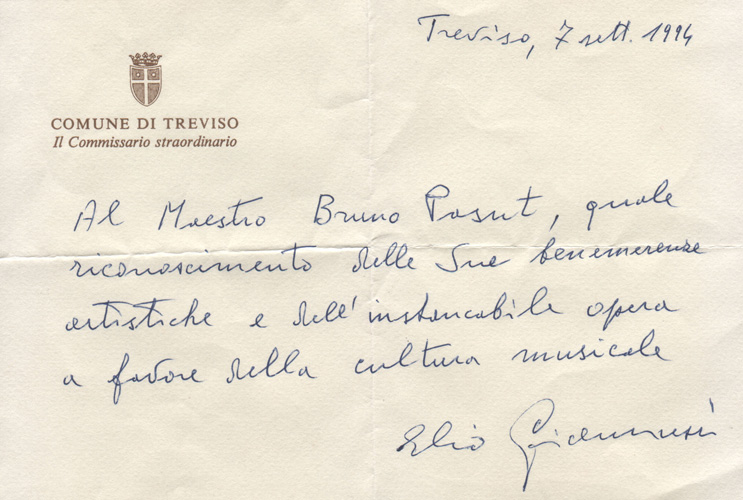 Treviso, 7 sett. 1994
COMUNE DI TREVISO
Il Commissario straordinario
Al Maestro Bruno Pasut, quale
riconoscimento delle Sue benemerenze
artistiche e dell'instancabile opera
a favore della cultura musicale
Elio